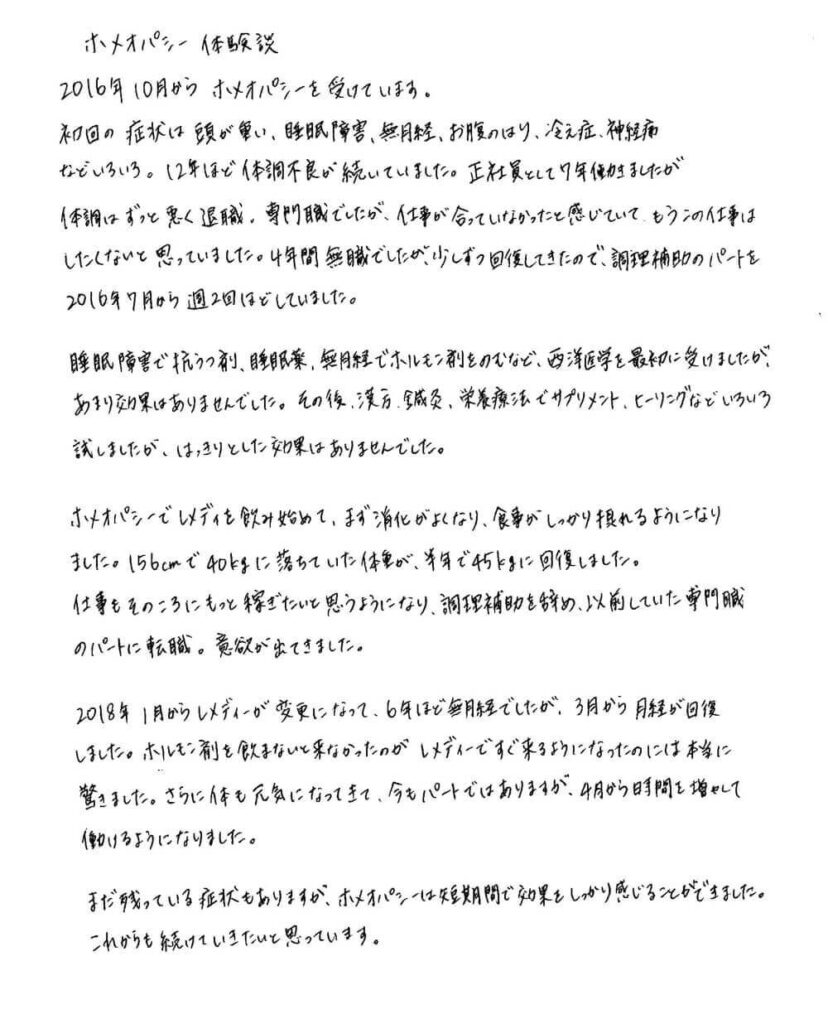 ホメオパシー 体験談
2016年10月から ホメオパシーを受けています。
初回の 症状は 頭が重い、睡眠障害、無月経、お腹のはり、冷え症、神経痛
などいろいろ。12年ほど体調不良が続いていました。正社員として7年働きましたが
体調はずっと悪く退職。専門職でしたが、仕事が合っていなかったと感じていて もうこの仕事は
したくないと思っていました。4年間無職でしたが、少しずつ回復してきたので、調理補助のパートを
2016年7月から週2回ほどしていました。
睡眠障害で抗うつ剤、睡眠薬、無月経でホルモン剤をのむなど、西洋医学を最初に受けましたが、
あまり効果はありませんでした。その後、漢方、鍼灸、栄養療法でサプリメント、ヒーリングなどいろいろ
試しましたが、はっきりとした効果はありませんでした。
ホメオパシーでレメディを飲み始めて、まず消化がよくなり、食事がしっかり摂れるようになり
ました。156cmで40kgに落ちていた体重が、半年で45kgに回復しました。
仕事もそのころにもっと稼ぎたいと思うようになり、調理補助を辞め、以前していた専門職
のパートに転職。意欲が出てきました。
2018年1月からレメディーが変更になって、6年ほど無月経でしたが、3月から月経が回復
しました。ホルモン剤を飲まないと来なかったのがレメディーですぐ来るようになったのには本当に
驚きました。さらに体も元気になってきて、今もパートではありますが、4月から時間を増やして
働けるようになりました。
まだ残っている症状もありますが、ホメオパシーは短期間で効果をしっかり感じることができました。
これからも続けていきたいと思っています。